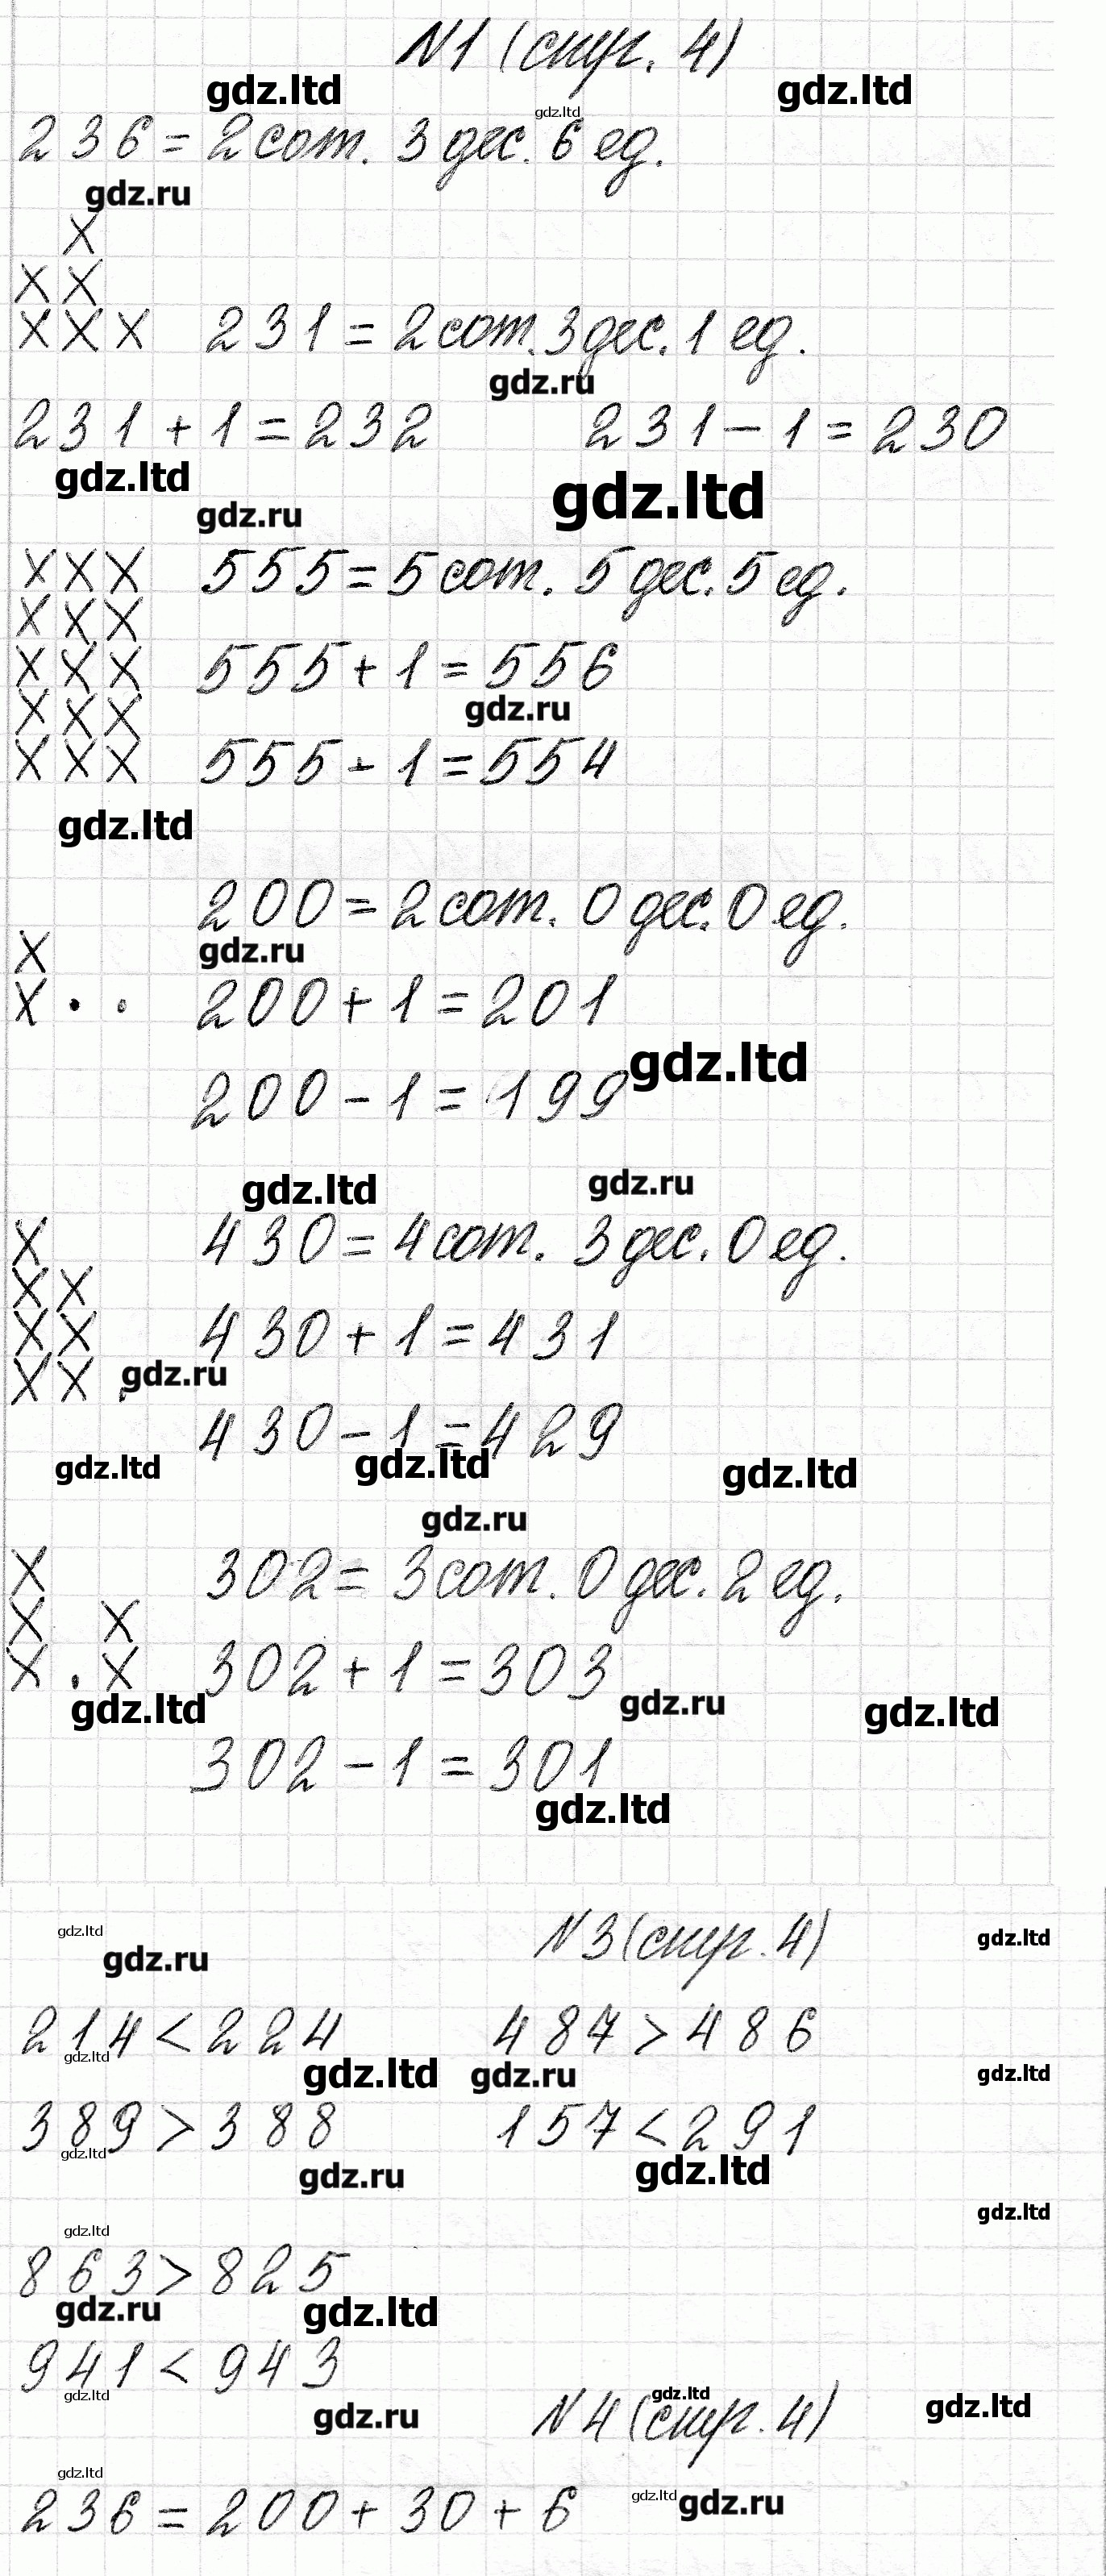 №1 (стр. 4)
gdz.ltd gdz.ltd
gdz.ltd
236 = 2 сот. 3 дес. 6 ед.
gdz.ru
X
X X
X X X 231 = 2 сот. 3 дес. 1 ед.
gdz.ru
231 + 1 = 232 231 - 1 = 230
gdz.ltd gdz.ltd
gdz.ru
X X X 555 = 5 сот. 5 дес. 5 ед.
X X X
X X X 555 + 1 = 556
X X X gdz.ru
X X X 555 - 1 = 554
gdz.ltd
200 = 2 сот. 0 дес. 0 ед.
X gdz.ru
X • • 200 + 1 = 201
gdz.ltd
200 - 1 = 199
gdz.ltd gdz.ru
X 430 = 4 сот. 3 дес. 0 ед.
X X
X X 430 + 1 = 431
X X . gdz.ru
430 - 1 = 429
gdz.ltd gdz.ltd gdz.ltd
gdz.ru
X 302 = 3 сот. 0 дес. 2 ед.
X X
X . X 302 + 1 = 303
gdz.ltd gdz.ru gdz.ltd
302 - 1 = 301
gdz.ltd
gdz.ltd №3 (стр. 4) gdz.ltd
gdz.ru
214 < 224 487 > 486
gdz.ltd gdz.ltd gdz.ru gdz.ltd
389 > 388 157 < 291
gdz.ltd gdz.ru gdz.ltd
gdz.ltd
gdz.ltd
863 > 825
gdz.ru gdz.ltd
941 < 943
gdz.ltd gdz.ltd gdz.ltd
gdz.ru №4 (стр. 4)
gdz.ltd
236 = 200 + 30 + 6 gdz.ltd gdz.ru